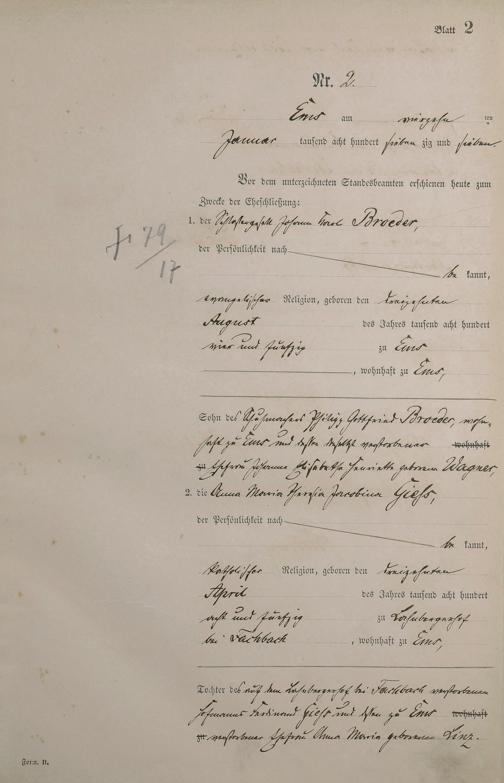 Blatt 2
Nr. 2.
Ems am vierzehn ten
Januar tausend acht hundert sieben zig und sieben
Vor dem unterzeichneten Standesbeamten erschienen heute zum
Zwecke der Eheschließung:
1. der Schlossergesell Johann Karl Broeder,
der Persönlichkeit nach
be kannt,
evangelischer Religion, geboren den dreizehnten
August des Jahres tausend acht hundert
vier und fünfzig zu Ems
, wohnhaft zu Ems,
Sohn des Schuhmachers Philipp Gottfried Broeder, wohn-
haft zu Ems und dessen verstorbener wohnhaft
zu Ehefrau Johanna Elisabetha Henriette geborene Wagner,
2. die Anna Maria Theresia Jacobina Giess,
der Persönlichkeit nach
be kannt,
katholischer Religion, geboren den dreizehnten
April des Jahres tausend acht hundert
acht und fünfzig zu
bei Fachbach, wohnhaft zu Ems,
Tochter des auf dem bei Fachbach verstorbenen
Hofmanns Ferdinand Giess und dessen zu Ems wohnhaft
zu verstorbener Ehefrau Anna Maria geborenen Linz.
Form. B.
79
17